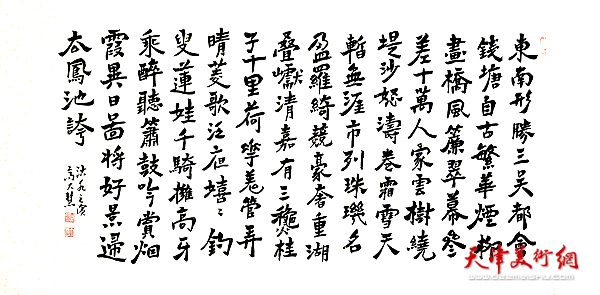 東南形勝三吴都會
錢塘自古繁華煙柳
畫橋風簾翠幕參
差十萬人家雲樹繞
堤沙怒濤卷霜雪天
塹無涯市列珠璣
盈羅綺競豪奢重湖
疊巘清嘉有三穐桂
子十里荷華羌管弄
晴菱歌泛夜嬉〻釣
叟蓮娃千騎擁高牙
乘醉聽簫鼓吟賞烟
霞異日圖將好景歸
去鳳池誇
天津美術網